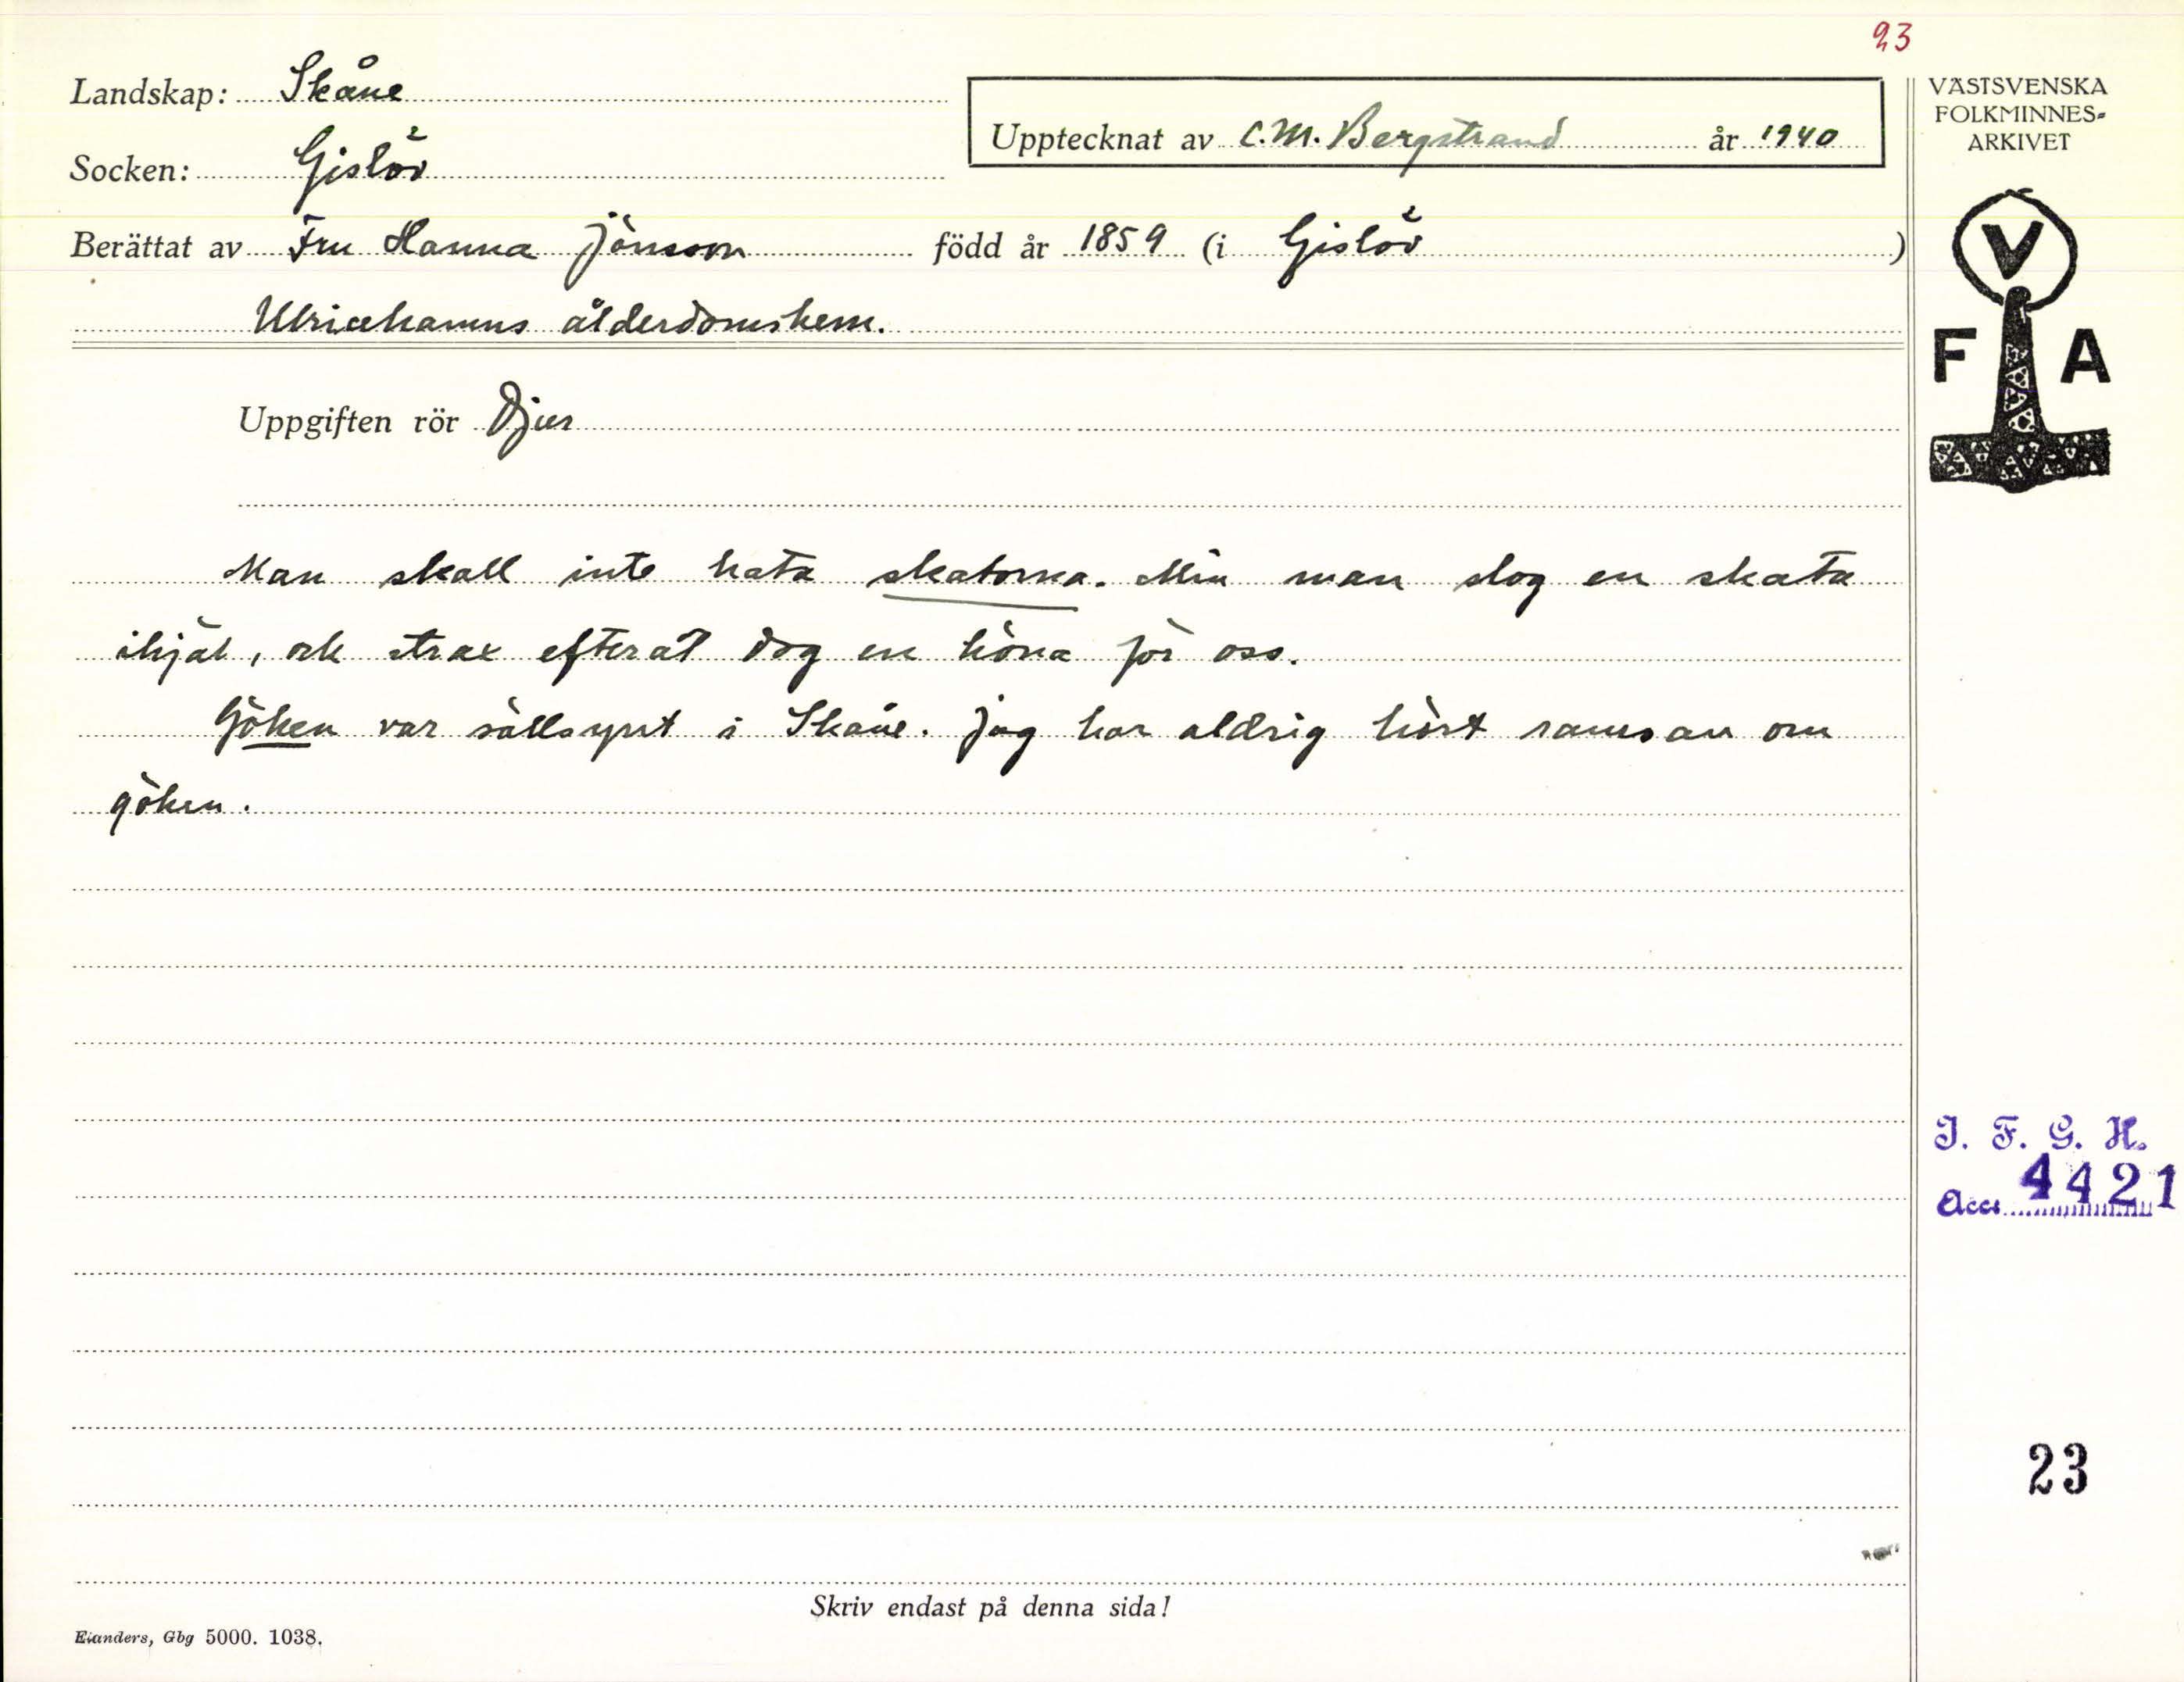 23
Landskap: Skåne
Upptecknat av C.M. Bergstrand år 1940
VÄSTSVENSKA
FOLKMINNES=
ARKIVET
Socken: Gislöv
Berättat av Fru Hanna Jönsson född år 1859 (i Gislöv)
Ulricehamns ålderdomshem.
V
F A
Uppgiften rör Djur
Man skall inte hata skatorna. Min man slog en skata
ihjäl, och strax efteråt dog en höna för oss.
Göken var sällsynt i Skåne. Jag har aldrig hört ramsan om
göken.
I. F. G. H.
Acc. 4421
23
Skriv endast på denna sida!
Elanders, Gbg 5000. 1038.